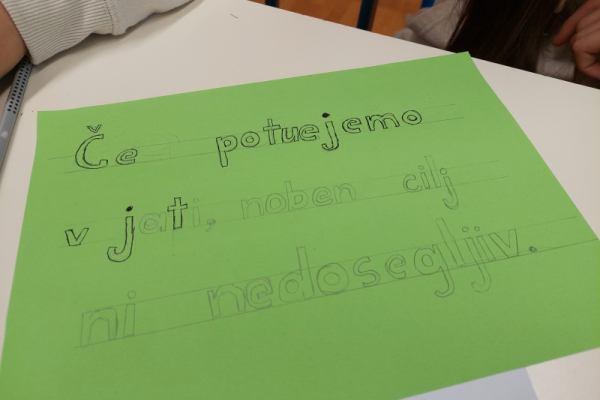 Če potuejemo
v jati, noben cilj
ni nedosegljiv.